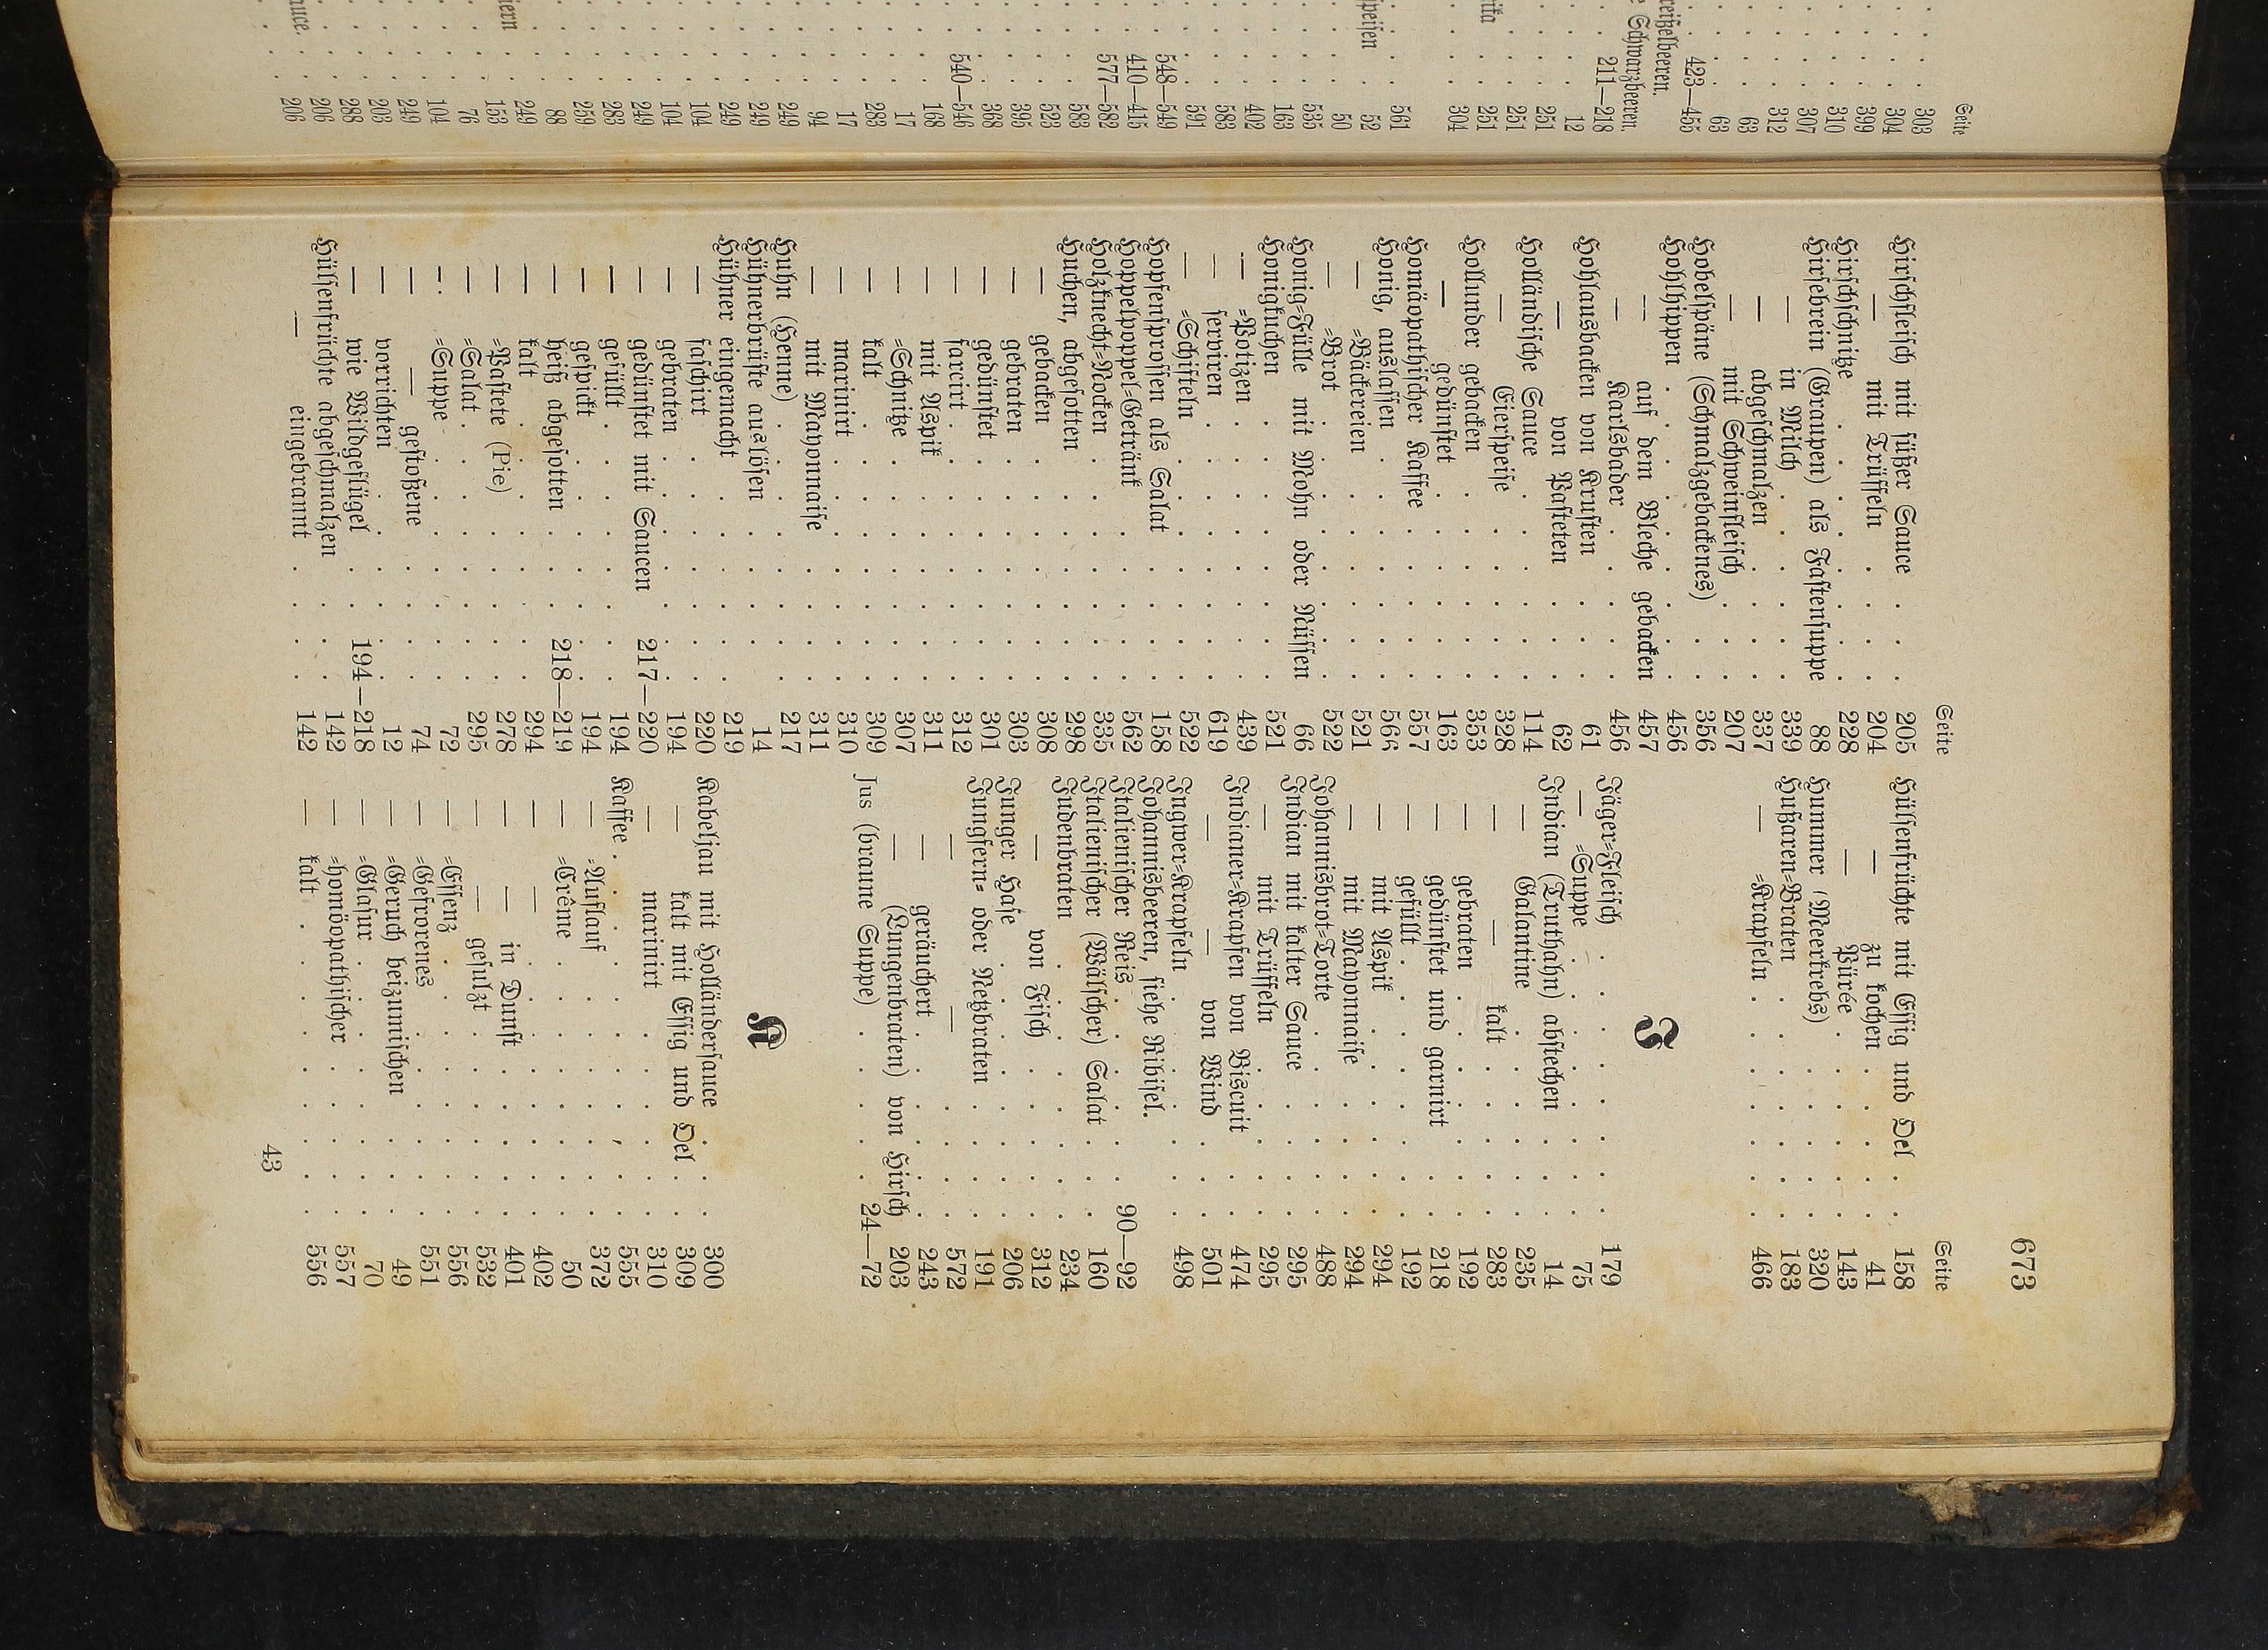 Seite
303
304
399
310
307
312
63
63
423—455
reißelbeeren.
e Schwarzbeeren.
211—218
12
251
251
ika 251
304
561
peisen 52
50
535
163
402
583
591
548—549
410—415
577—582
583
523
395
368
540—546
168
17
283
17
94
249
249
249
104
104
249
283
259
88
249
iern 153
76
104
249
203
288
206
auce. 206
673
Seite
Hirschfleisch mit süßer Sauce . . . 205
— mit Trüffeln . . . 204
Hirschschnitze . . . 228
Hirsebrein (Graupen) als Fastensuppe 88
— in Milch . . . 339
— abgeschmalzen . . . 337
— mit Schweinfleisch . . . 207
Hobelspäne (Schmalzgebackenes) . . . 356
Hohlhippen . . . 456
— auf dem Bleche gebacken 457
— Karlsbader . . . 456
Hohlausbacken von Krusten . . . 61
— von Pasteten . . . 62
Holländische Sauce . . . 114
— Eierspeise . . . 328
Hollunder gebacken . . . 353
— gedünstet . . . 163
Homöopathischer Kaffee . . . 557
Honig, auslassen . . . 566
— =Bäckereien . . . 521
— =Brot . . . 522
Honig=Fülle mit Mohn oder Nüssen 66
Honigkuchen . . . 521
— =Potizen . . . 439
— serviren . . . 619
— =Schifteln . . . 522
Hopfensprossen als Salat . . . 158
Hoppelpoppel=Getränk . . . 562
Holzknecht=Nocken . . . 335
Huchen, abgesotten . . . 298
— gebacken . . . 308
— gebraten . . . 303
— gedünstet . . . 301
— farcirt . . . 312
— mit Aspik . . . 311
— =Schnitze . . . 307
— kalt . . . 309
— marinirt . . . 310
— mit Mayonnaise . . . 311
Huhn (Henne) . . . 217
Hühnerbrüste auslösen . . . 14
Hühner eingemacht . . . 219
— faschirt . . . 220
— gebraten . . . 194
— gedünstet mit Saucen 217—220
— gefüllt . . . 194
— gespickt . . . 194
— heiß abgesotten . . . 218—219
— kalt . . . 294
— =Pastete (Pie) . . . 278
— =Salat . . . 295
— =Suppe . . . 72
— — gestoßene . . . 74
— vorrichten . . . 12
— wie Wildgeflügel . . . 194—218
Hülsenfrüchte abgeschmalzen . . . 142
— eingebrannt . . . 142
Seite
Hülsenfrüchte mit Essig und Oel . . . 158
— zu kochen . . . 41
— Púrée . . . 143
Hummer (Meerkrebs) . . . 320
Hußaren=Braten . . . 183
— =Krapfeln . . . 466
J
Jäger=Fleisch . . . 179
— =Suppe . . . 75
Indian (Truthahn) abstechen . . . 14
— Galantine . . . 235
— — kalt . . . 283
— gebraten . . . 192
— gedünstet und garnirt . . . 218
— gefüllt . . . 192
— mit Aspik . . . 294
— mit Mayonnaise . . . 294
Johannisbrot=Torte . . . 488
Indian mit kalter Sauce . . . 295
— mit Trüffeln . . . 295
Indianer=Krapfen von Biscuit . . . 474
— — von Wind . . . 501
Ingwer=Krapfeln . . . 498
Johannisbeeren, siehe Ribisel.
Italienischer Reis . . . 90—92
Italienischer (Wälscher) Salat . . . 160
Judenbraten . . . 234
— von Fisch . . . 312
Junger Hase . . . 206
Jungfern= oder Netzbraten . . . 191
— — . . . 572
— geräuchert . . . 243
— (Lungenbraten) von Hirsch 203
Jus (braune Suppe) . . . 24—72
K
Kabeljau mit Holländersauce . . . 300
— kalt mit Essig und Oel . . . 309
— marinirt . . . 310
Kaffee . . . 555
— =Auflauf . . . 372
— =Crême . . . 50
— — . . . 402
— — in Dunst . . . 401
— — gesulzt . . . 532
— =Essenz . . . 556
— =Gefrorenes . . . 551
— =Geruch beizumischen . . . 49
— =Glasur . . . 70
— =homöopathischer . . . 557
— kalt . . . 556
43